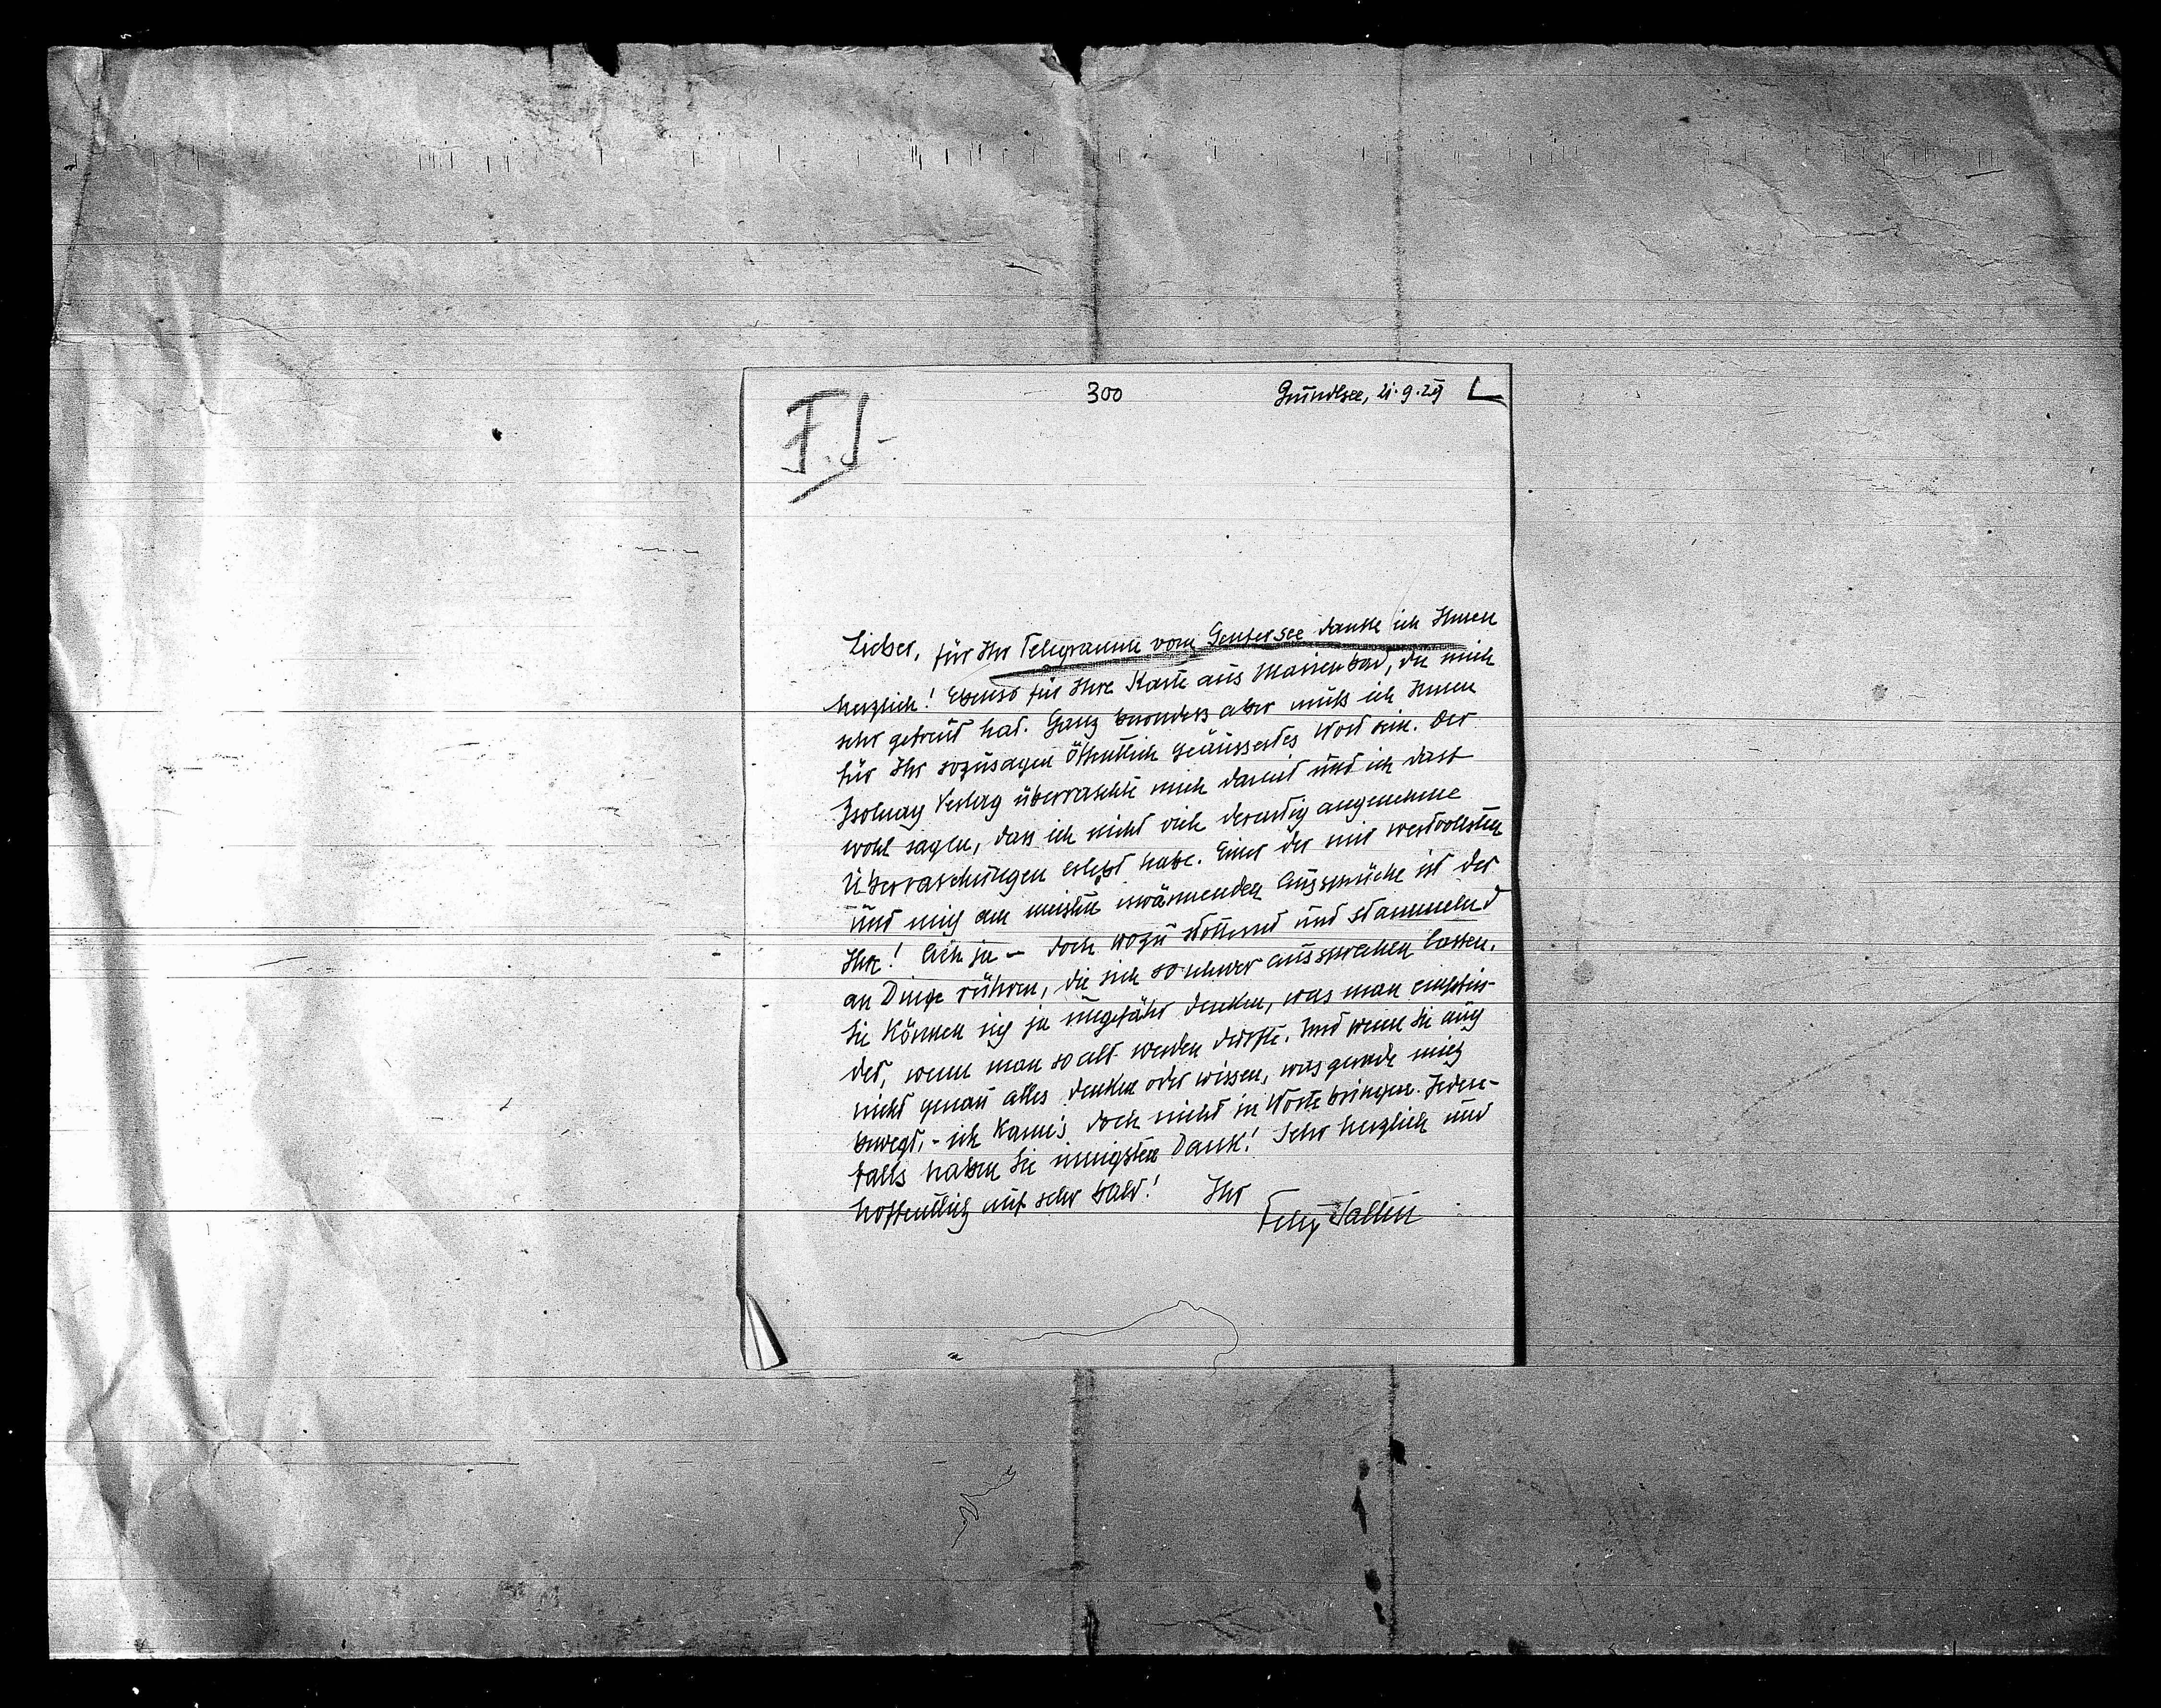 300
Grundlsee, 21.9.29
F. S.
Lieber, für Ihr Telegramm vom Genfersee danke ich Ihnen
herzlich! Ebenso für Ihre Karte aus Marienbad, die mich
sehr gefreut hat. Ganz besonders aber muß ich Ihnen
für Ihr sozusagen öffentlich geäussertes Wort sein. Der
Zsolnay Verlag überraschte mich damit und ich darf
wohl sagen, dass ich nicht viele derartig angenehme
Überraschungen erlebt habe. Einer der mir wertvollsten
und mich am meisten erwärmenden Aussprüche ist der
Ihre! Ach ja – doch wozu stotternd und stammelnd
an Dinge rühren, die sich so schwer aussprechen lassen.
Sie können sich ja ungefähr denken, was man empfin-
det, wenn man so alt werden durfte. Und wenn Sie auch
nicht genau alles denken oder wissen, was gerade mich
bewegt, - ich kann's doch nicht in Worte bringen. Jeden-
falls haben Sie innigsten Dank! Sehr herzlich und
hoffentlich auf sehr bald! Ihr
Felix Salten